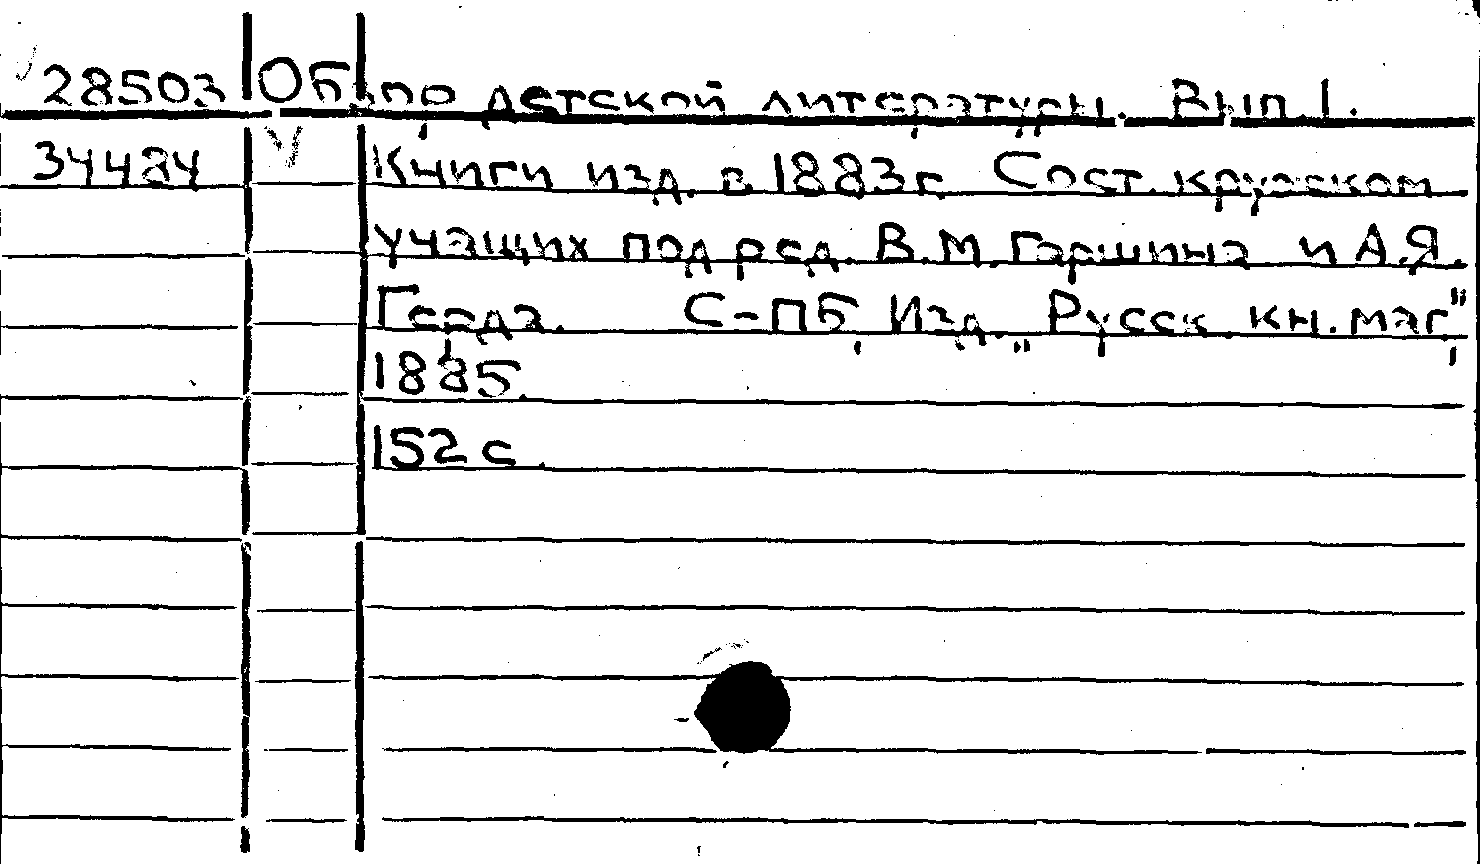 28503 Обзор детской литературы. Вып. 1.
34484 V Книги изд. в 1883 г. Сост. кружком
учащих под ред. В. М. Гаршина и А. Я.
Герда. С-ПБ, Изд. „Русск. кн. маг.",
1885.
152 с.